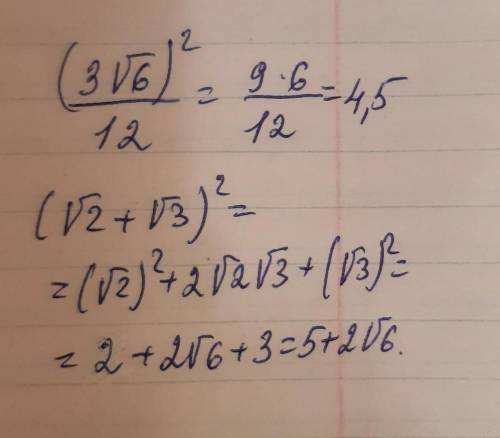 (3√6)²/12 = 9·6/12 = 4,5
(√2 + √3)² =
= (√2)² + 2√2√3 + (√3)² =
= 2 + 2√6 + 3 = 5 + 2√6.